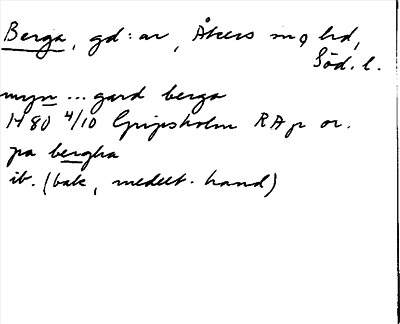 Berga, gd:ar, Åkers sn o hd,
Söd. l.
myn ... gard berga
1480 4/10 Gripsholm RAp or.
pa bergha
ib. (bak, medelt. hand)